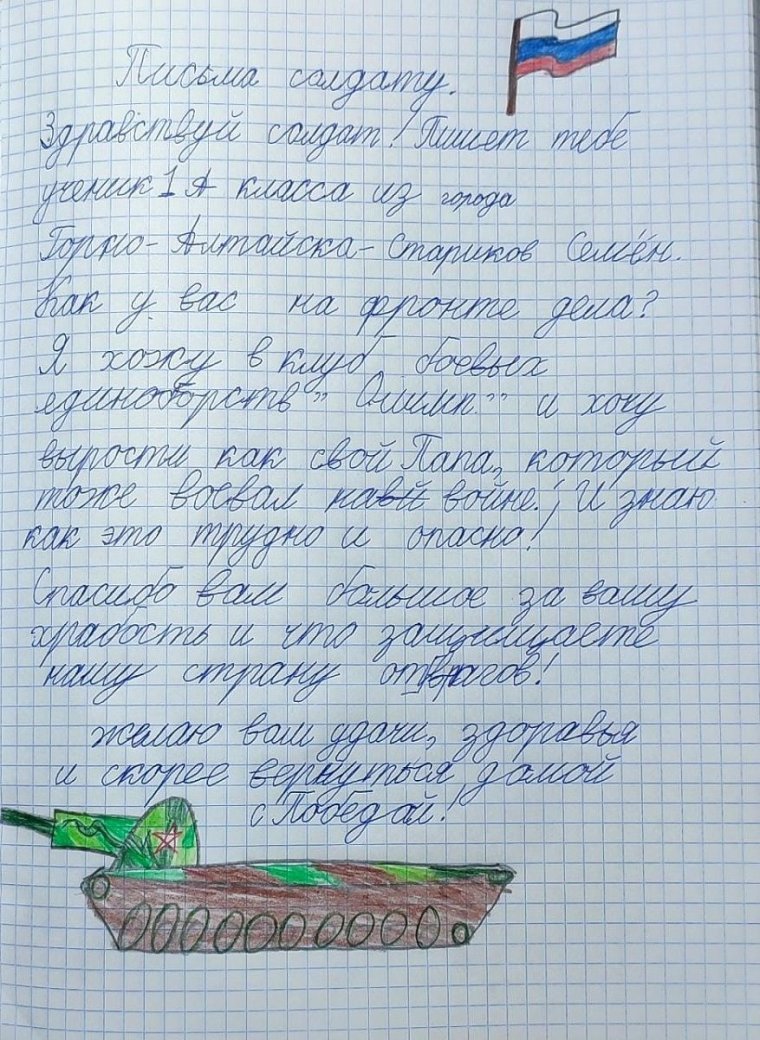 Письма солдату.
Здравствуй солдат! Пишет тебе
ученик 1 А класса из города
Горно-Алтайска-Стариков Семён.
Как у вас на фронте дела?
Я хожу в клуб боевых
единоборств „ Олимп " и хочу
вырости как свой Папа, который
тоже воевал на войне! И знаю
как это трудно и опасно!
Спасибо вам большое за вашу
храбость и что защищаете
нашу страну от врагов!
желаю вам удачи, здоровья
и скорее вернуться домой
с Победай!